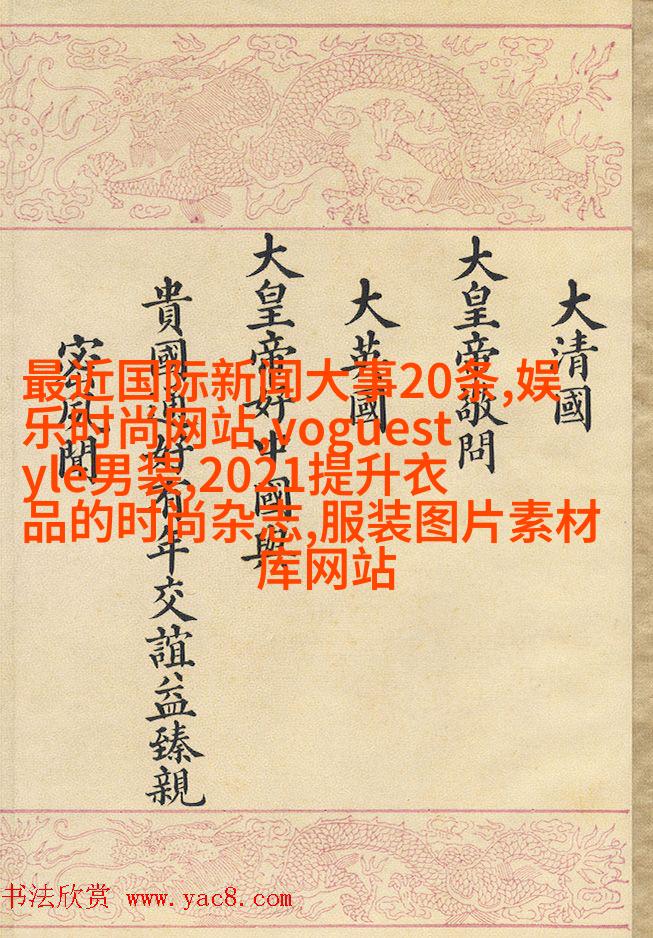 大清國
大皇帝敬問
大英國
大皇帝好中國與
貴國好有年交誼益臻親
密風聞
最近国际新闻大事20条,娱
乐时尚网站,voguest
yle男装,2021提升衣
品的时尚杂志,服装图片素材
库网站
书法欣赏 www.yac8.com